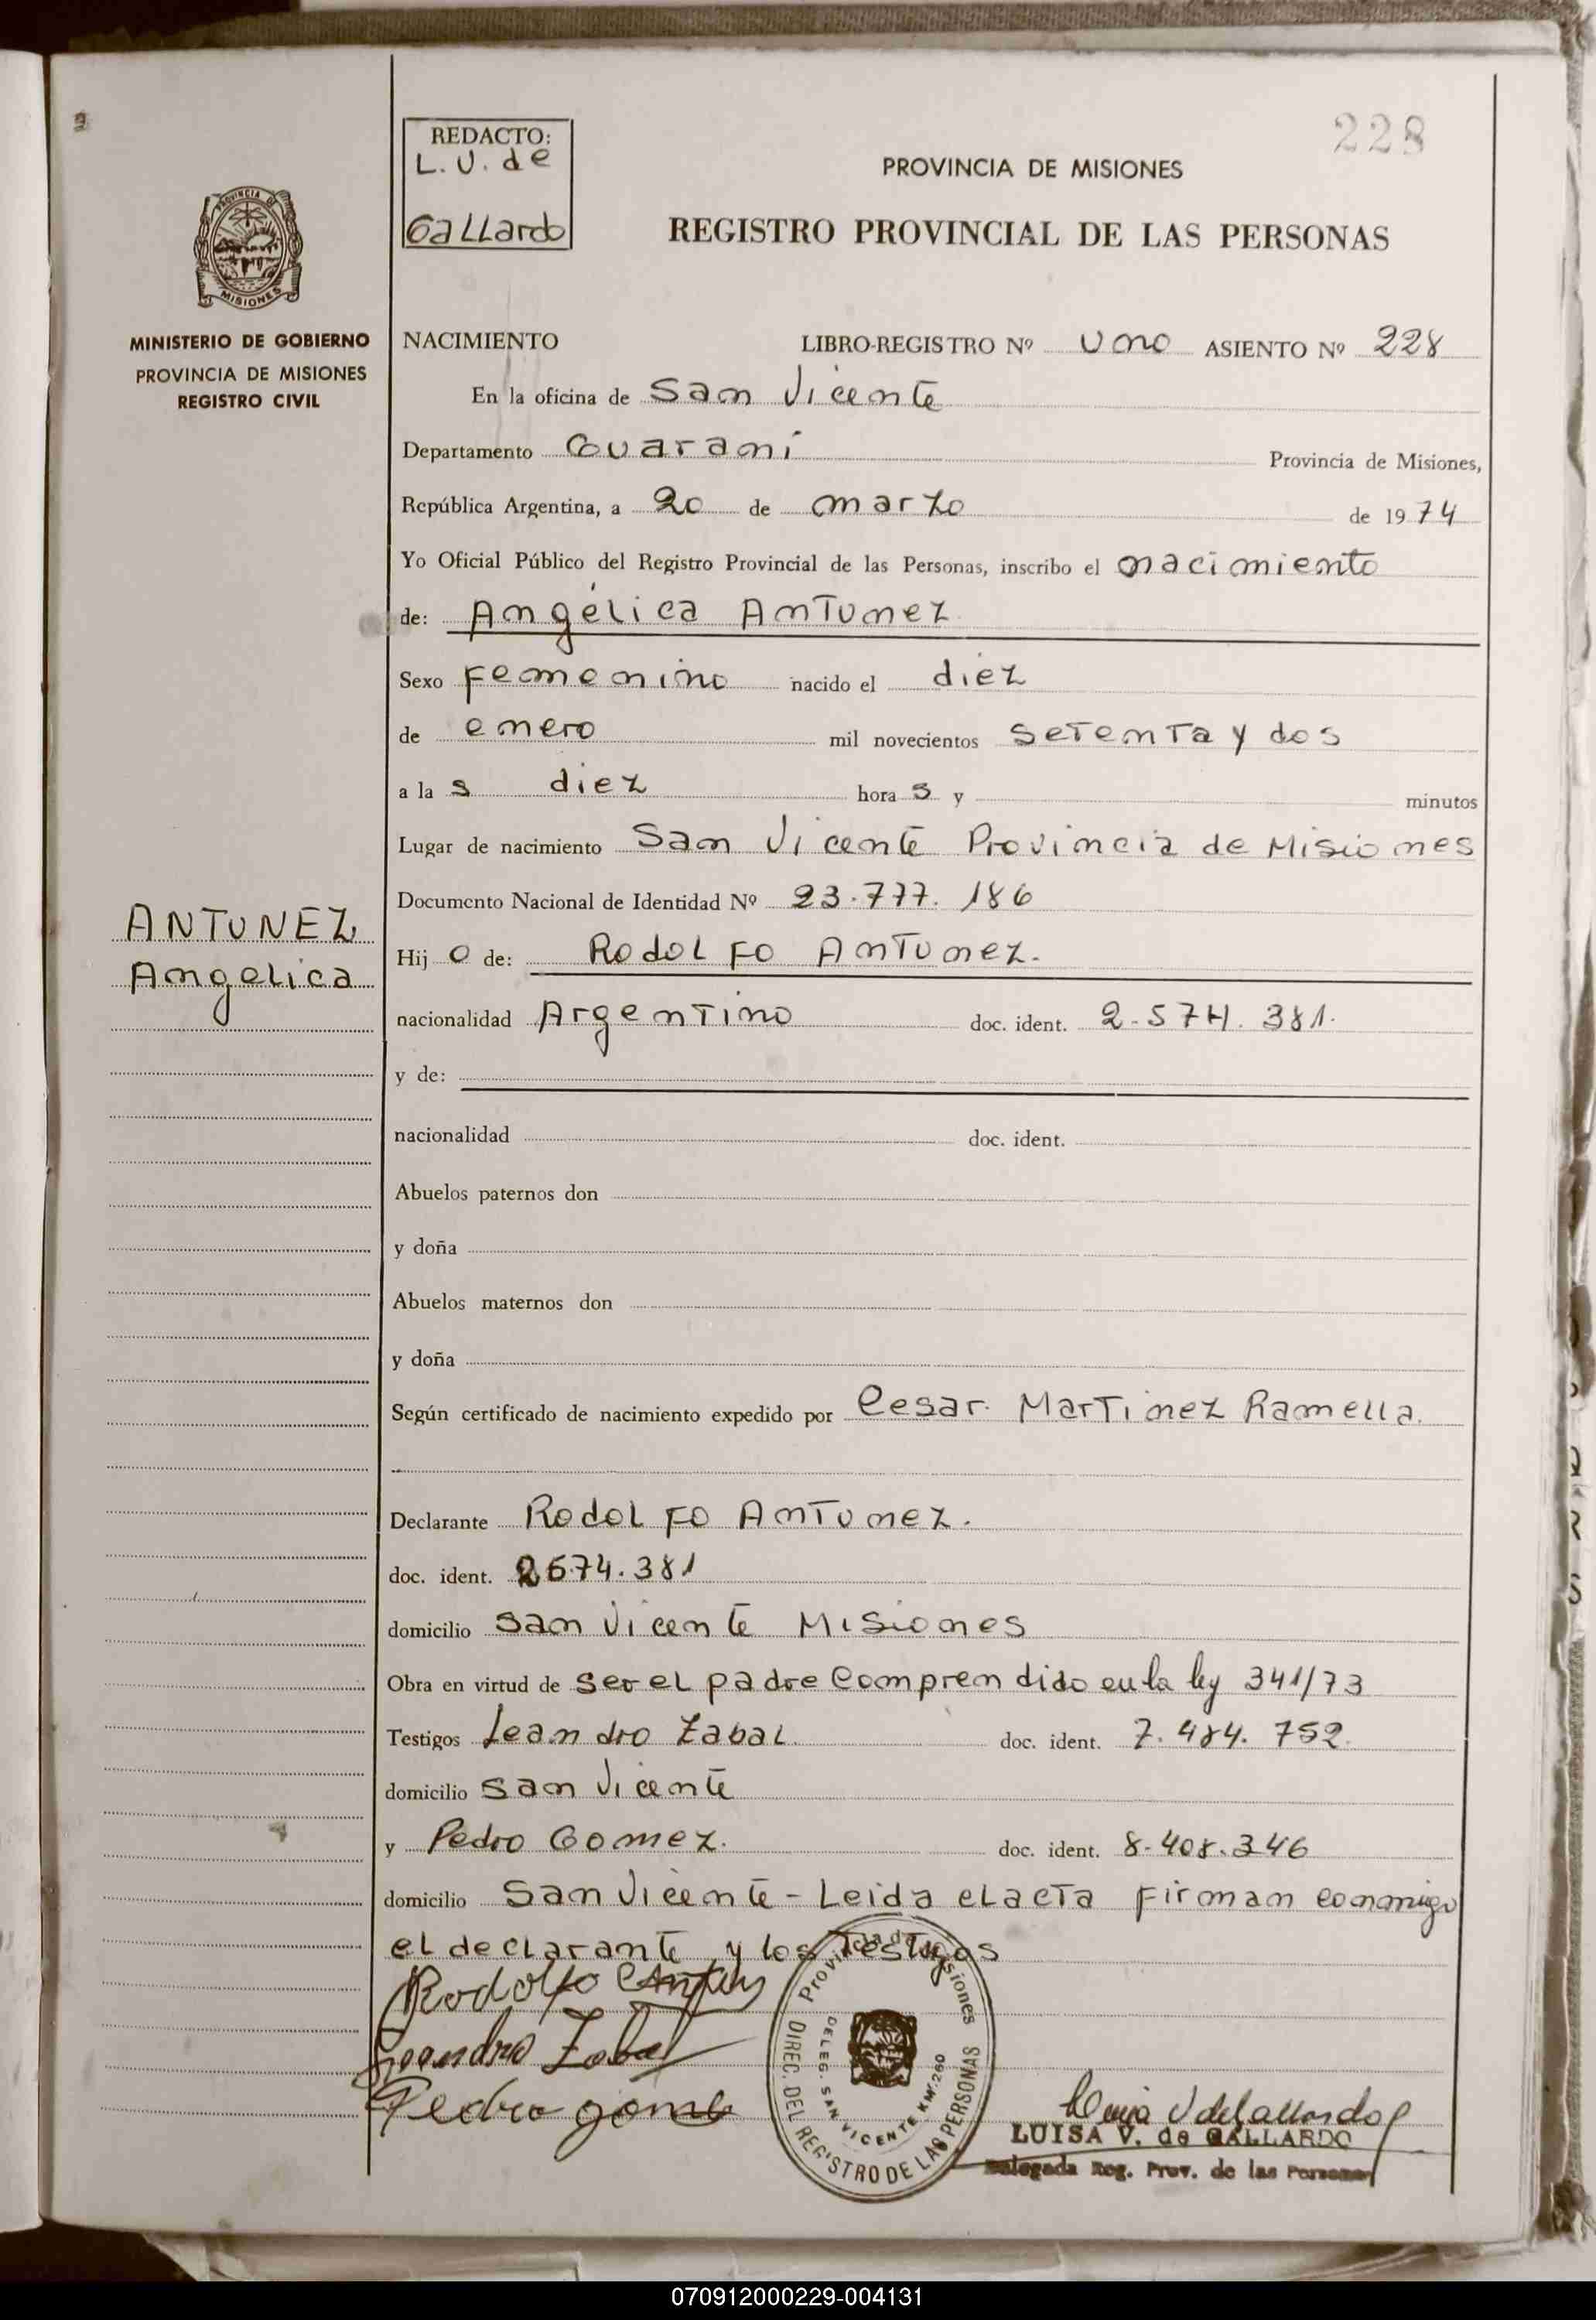 228
REDACTO:
L. V. de
Gallardo
PROVINCIA DE MISIONES
REGISTRO PROVINCIAL DE LAS PERSONAS
PROVINCIA DE
MISIONES
MINISTERIO DE GOBIERNO
PROVINCIA DE MISIONES
REGISTRO CIVIL
NACIMIENTO LIBRO-REGISTRO Nº Uno ASIENTO Nº 228
En la oficina de San Vicente
Departamento Guarani Provincia de Misiones,
República Argentina, a 20 de marzo de 1974
Yo Oficial Público del Registro Provincial de las Personas, inscribo el nacimiento
de: Angélica Antunez
Sexo Femenino nacido el diez
de enero mil novecientos setenta y dos
a las diez horas y minutos
Lugar de nacimiento San Vicente Provincia de Misiones
Documento Nacional de Identidad Nº 23.777.186
ANTUNEZ
Angelica
Hijo de: Rodolfo Antunez.
nacionalidad Argentino doc. ident. 2.574.381.
y de:
nacionalidad doc. ident.
Abuelos paternos don
y doña
Abuelos maternos don
y doña
Según certificado de nacimiento expedido por Cesar. Martinez Ramella.
Declarante Rodolfo Antunez.
doc. ident. 2674.381
domicilio San Vicente Misiones
Obra en virtud de ser el padre Comprendido en la ley 341/73
Testigos Leandro Zabal. doc. ident. 7.484.752.
domicilio San Vicente
y Pedro Gomez. doc. ident. 8.408.346
domicilio San Vicente - Leida el acta Firman conmigo
el declarante y los Testigos
Rodolfo
Leandro Zabal
Pedro gomez
Provincia de Misiones
DIREC. DEL REGISTRO DE LAS PERSONAS
DELEG. SAN VICENTE KM. 260
Luisa V de Gallardo
LUISA V. de GALLARDO
Delegada Reg. Prov. de las Personas
070912000229-004131